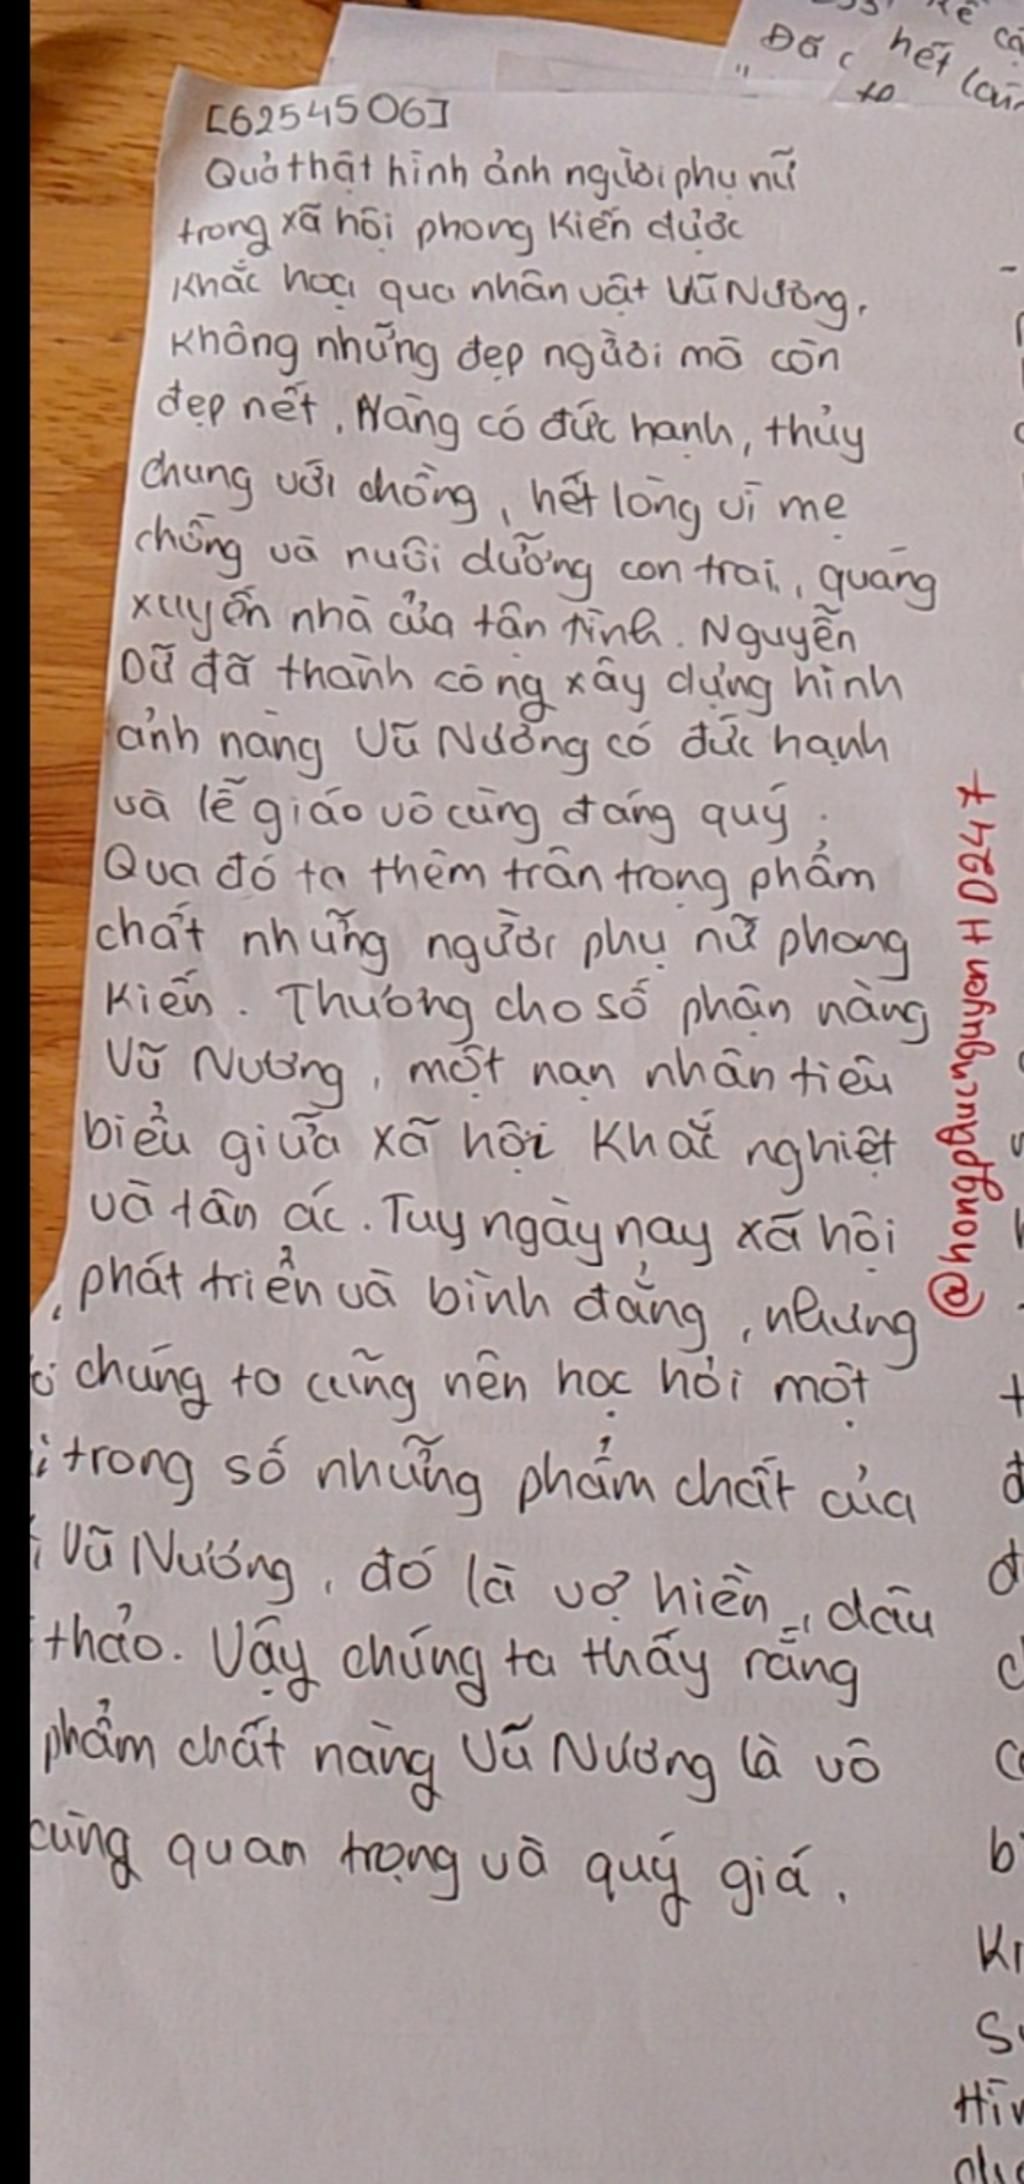 [6254506]
Quả thật hình ảnh người phụ nữ
trong xã hội phong kiến được
khắc hoạ qua nhân vật Vũ Nương.
Không những đẹp người mà còn
đẹp nết. Nàng có đức hạnh, thủy
chung với chồng, hết lòng vì mẹ
chồng và nuôi dưỡng con trai, quáng
xuyến nhà cửa tận tình. Nguyễn
Dữ đã thành công xây dựng hình
ảnh nàng Vũ Nương có đức hạnh
và lễ giáo vô cùng đáng quý.
Qua đó ta thêm trân trọng phẩm
chất những người phụ nữ phong
kiến. Thương cho số phận nàng
Vũ Nương, một nạn nhân tiêu
biểu giữa xã hội khắc nghiệt
và tàn ác. Tuy ngày nay xã hội
phát triển và bình đẳng, nhưng
chúng ta cũng nên học hỏi một
trong số những phẩm chất của
Vũ Nương, đó là vợ hiền, dâu
thảo. Vậy chúng ta thấy rằng
phẩm chất nàng Vũ Nương là vô
cùng quan trọng và quý giá.
@hongphucnguyenHD247
Đã
hết